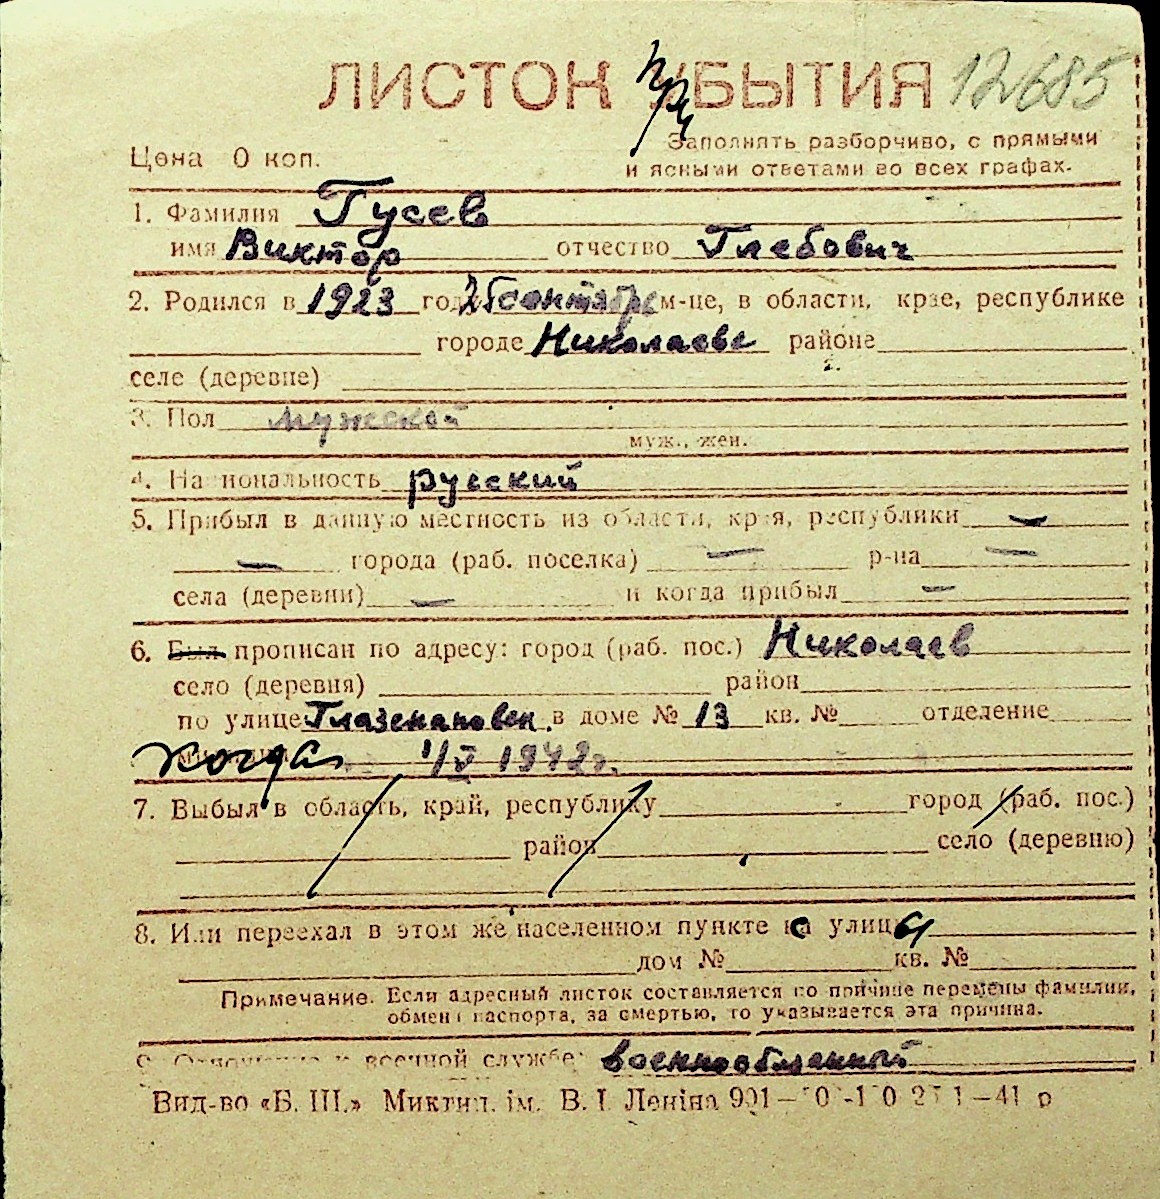 ЛИСТОК ПРИБЫТИЯ 12685
Цена 0 коп.
Заполнять разборчиво, с прямыми
и ясными ответами во всех графах.
1. Фамилия Гусев
имя Виктор отчество Глебович
2. Родился в 1923 году 25 сентябре м-це, в области, крае, республике
городе Николаеве районе
селе (деревне)
3. Пол мужской
муж., жен.
4. Национальность русский
5. Прибыл в данную местность из области, края, республики —
— города (раб. поселка) — р-на —
села (деревни) — и когда прибыл —
6. Был прописан по адресу: город (раб. пос.) Николаев
село (деревня) район
по улице Глазенаповск. в доме № 13 кв. № отделение
когда 1/V 1942г.
7. Выбыл в область, край, республику город (раб. пос.)
район село (деревню)
8. Или переехал в этом же населенном пункте с улицы
дом № кв. №
Примечание. Если адресный листок составляется по причине перемены фамилии,
обмена паспорта, за смертью, то указывается эта причина.
9. Отношение к военной службе: военнообязанный
Вид-во «Б. Ш.» Миктип. ім. В. І. Леніна